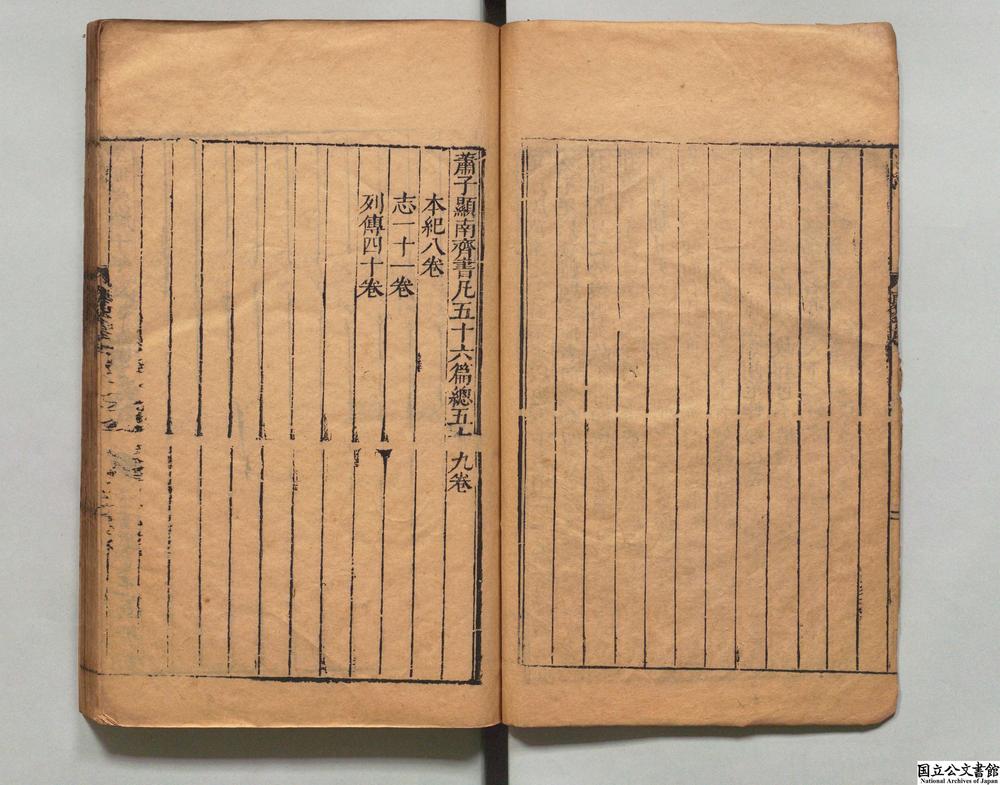 蕭子顯南齊書凡五十六篇總五十九卷
本紀八卷
志一十一卷
列傳四十卷
国立公文書館
National Archives of Japan